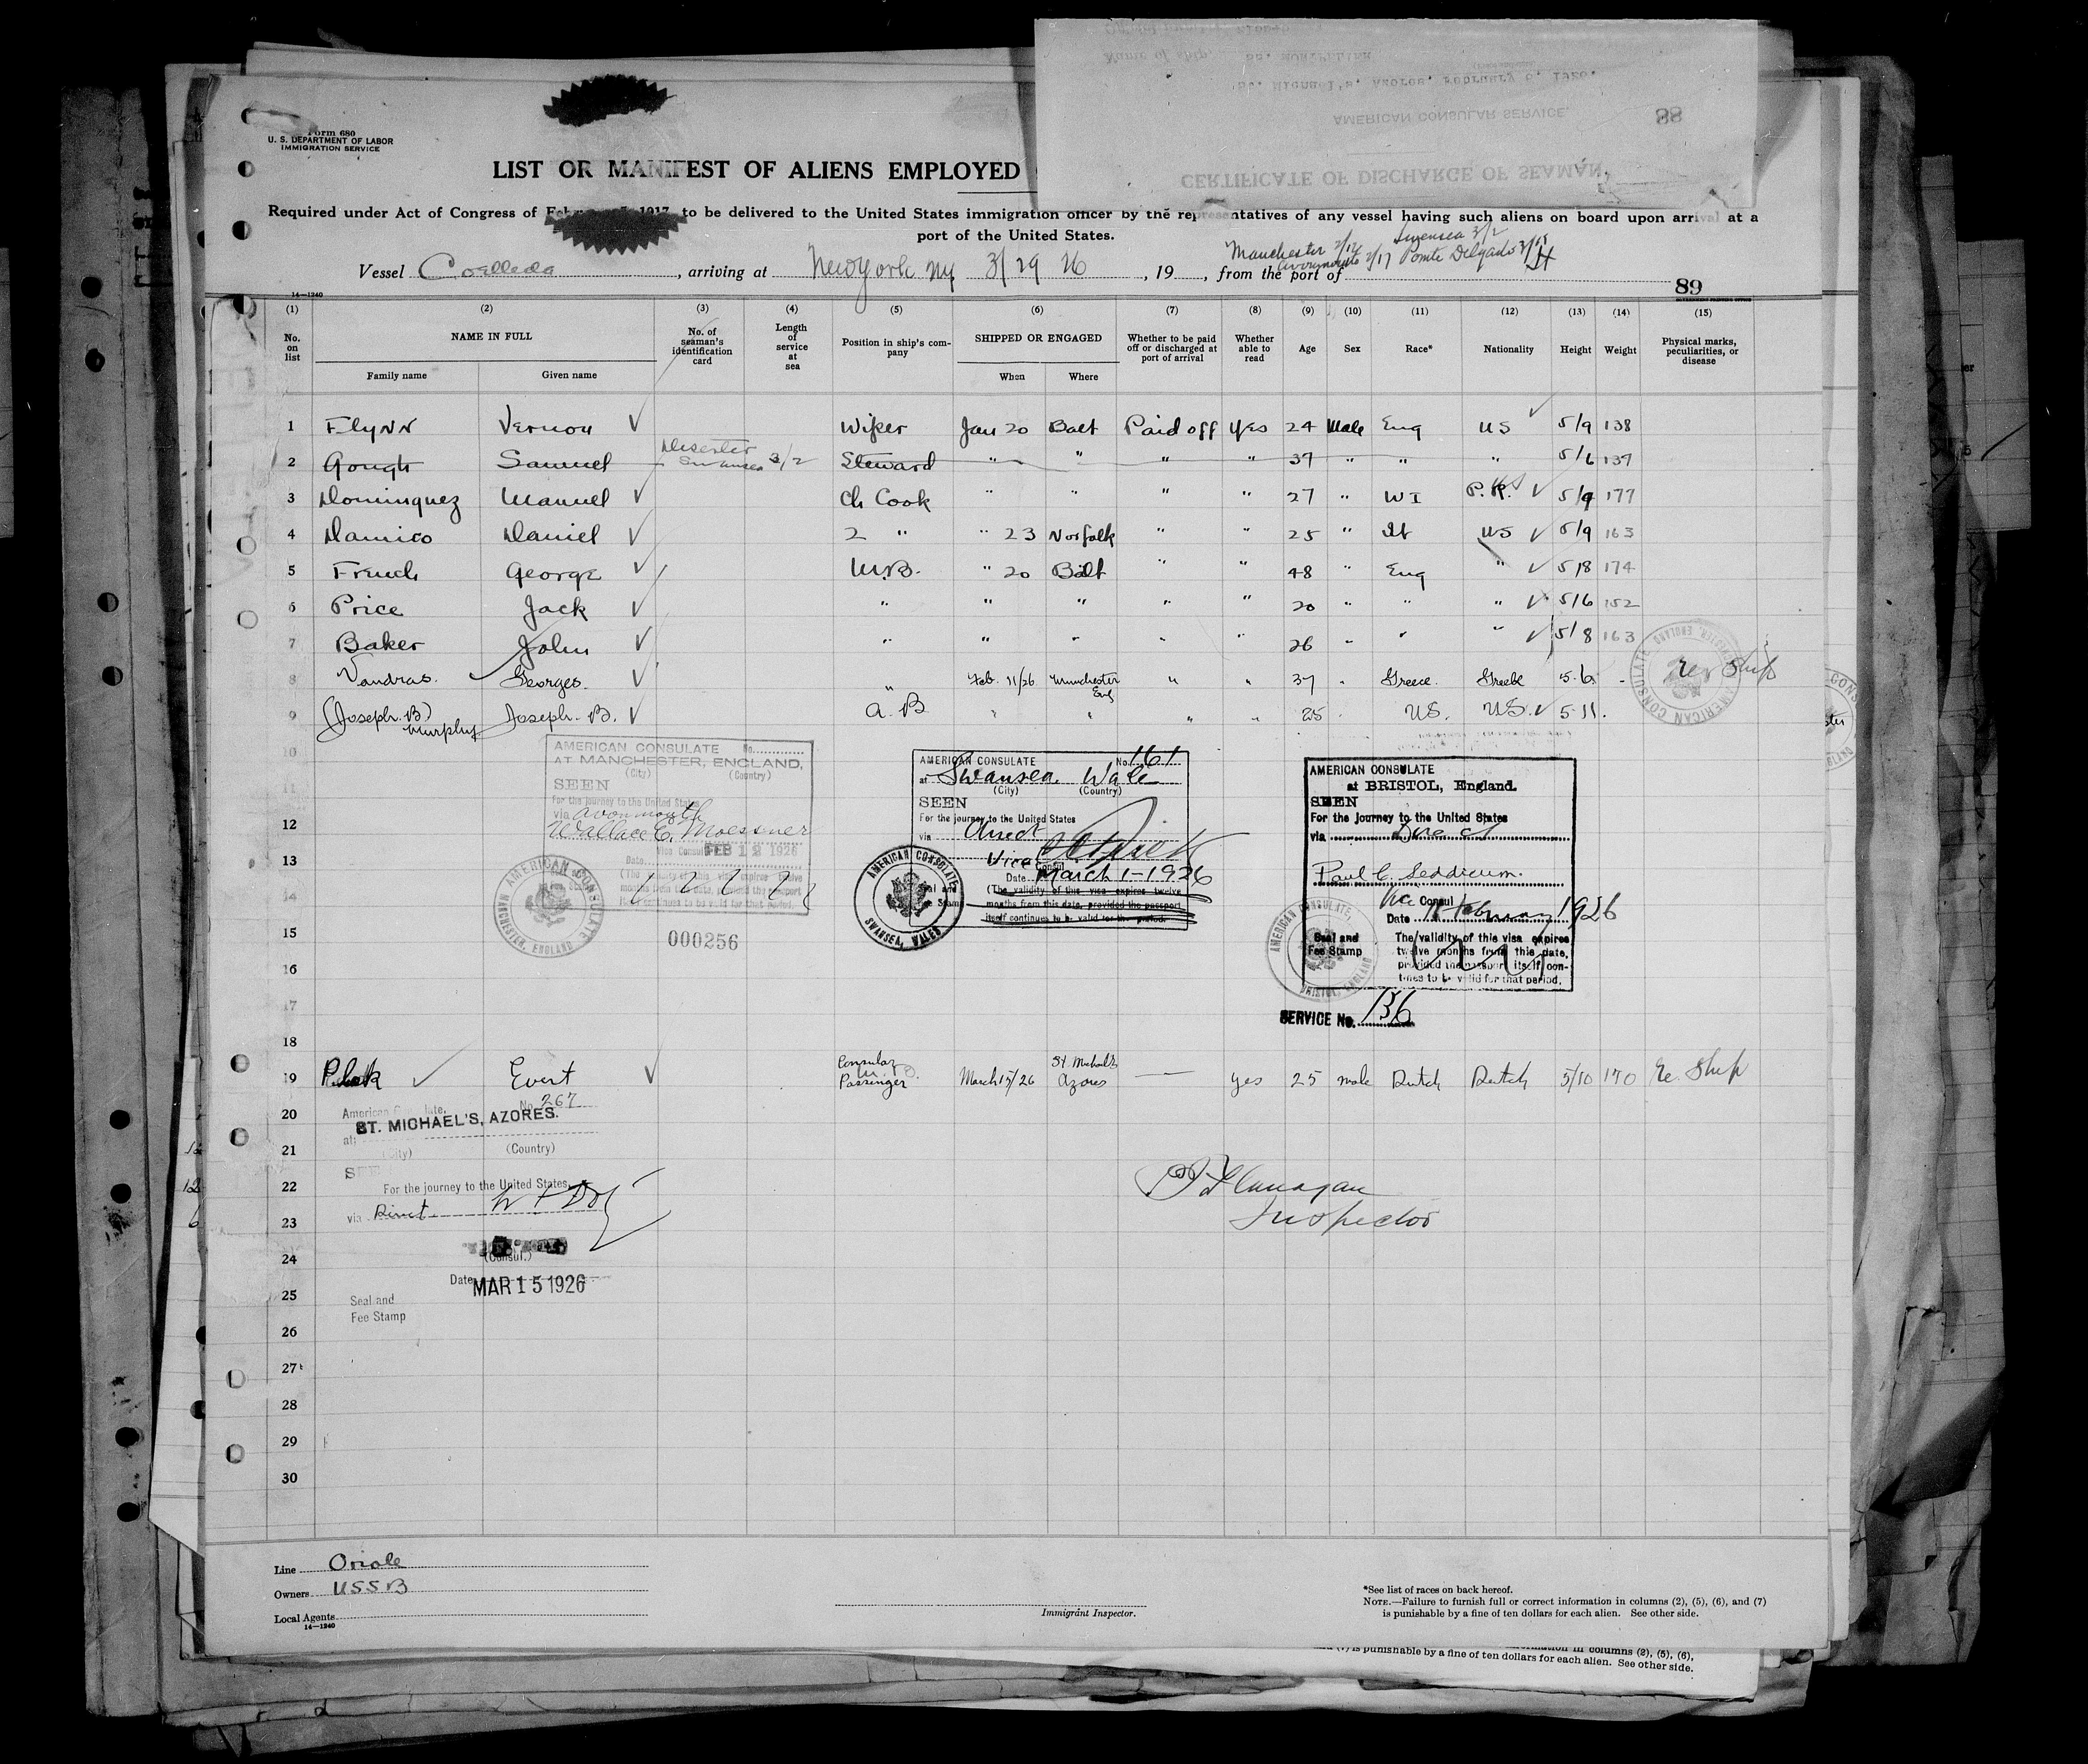 CERTIFICATE OF DISCHARGE OF SEAMAN.
AMERICAN CONSULAR SERVICE.
88
St. Michael's, Azores, February 6, 1926.
Name of ship,
Form 680
U. S. DEPARTMENT OF LABOR
IMMIGRATION SERVICE
LIST OR MANIFEST OF ALIENS EMPLOYED
Required under Act of Congress of February 5, 1917, to be delivered to the United States immigration officer by the representatives of any vessel having such aliens on board upon arrival at a
port of the United States.
Manchester 2/12 Swensea 3/2
Avonmouth 2/17 Ponte Delgado 3/15
Vessel Coelleda, arriving at New York Ny 3/29 26, 19, from the port of
14—1240
89
(1) (2) (3) (4) (5) (6) (7) (8) (9) (10) (11) (12) (13) (14) (15)
No. on list NAME IN FULL No. of seaman's identification card Length of service at sea Position in ship's company SHIPPED OR ENGAGED Whether to be paid off or discharged at port of arrival Whether able to read Age Sex Race* Nationality Height Weight Physical marks, peculiarities, or disease
Family name Given name When Where
1 Flynn Vernon Wiper Jan 20 Balt Paid off Yes 24 Male Eng US 5/9 138
Deserter
2 Gough Samuel Swansea 3/2 Steward " " " " 37 " " " 5/6 139
3 Dominquez Manuel Ch Cook " " " " 27 " WI P.R. 5/9 177
4 Damico Daniel 2 " " 23 Norfolk " " 25 " It US 5/9 163
5 French George M.B. " 20 Balt " " 48 " Eng " 5/8 174
6 Price Jack " " " " " 20 " " " 5/6 152
7 Baker John " " " " " 26 " " " 5/8 163
8 Vandras. Georges. " Feb. 11/26 Manchester Eng " " 37 " Greece. Greebe 5-6 - Re Ship
9 (Joseph. B) Murphy Joseph. B. A. B " " " " 25 . US. US. 5-11.
10
11
12
13
14
15
16
17
18
AMERICAN CONSULATE No.
AT MANCHESTER, ENGLAND,
(City) (Country)
SEEN
For the journey to the United States
via Avonmouth
Wallace E. Moessner
Vice Consul FEB 12 1926
Date
000256
AMERICAN CONSULATE MANCHESTER, ENGLAND
AMERICAN CONSULATE No. 161
at Swansea. Wale
(City) (Country)
SEEN
For the journey to the United States
via Direct
Vice Consul
Date March 1-1926
(The validity of this visa expires twelve
months from this date, provided the passport
itself continues to be valid for the period.
AMERICAN CONSULATE SWANSEA, WALES
AMERICAN CONSULATE
at BRISTOL, England.
SEEN
For the Journey to the United States
via Direct
Paul C. Seddicum.
Vice Consul
Date February 1926
Seal and
Fee Stamp
The validity of this visa expires
twelve months from this date,
provided the passport itself con-
tinues to be valid for that period.
AMERICAN CONSULATE, BRISTOL, ENGLAND
SERVICE No. 136
19 Evert Consular Passenger March 15/26 St. Michaels Azores — Yes 25 male Dutch Dutch 5/10 170 Re. Ship
20
21
22
23
24
25
26
27
28
29
30
American Consulate, No. 267
at ST. MICHAEL'S, AZORES.
(City) (Country)
SEEN
For the journey to the United States,
via Direct.
(Consul.)
Date MAR 15 1926
Seal and
Fee Stamp
Flanagan
Inspector
Line Oriole
Owners USSB
Local Agents
14—1240
Immigrant Inspector.
*See list of races on back hereof.
NOTE.—Failure to furnish full or correct information in columns (2), (5), (6), and (7)
is punishable by a fine of ten dollars for each alien. See other side.
information in columns (2), (5), (6),
is punishable by a fine of ten dollars for each alien. See other side.